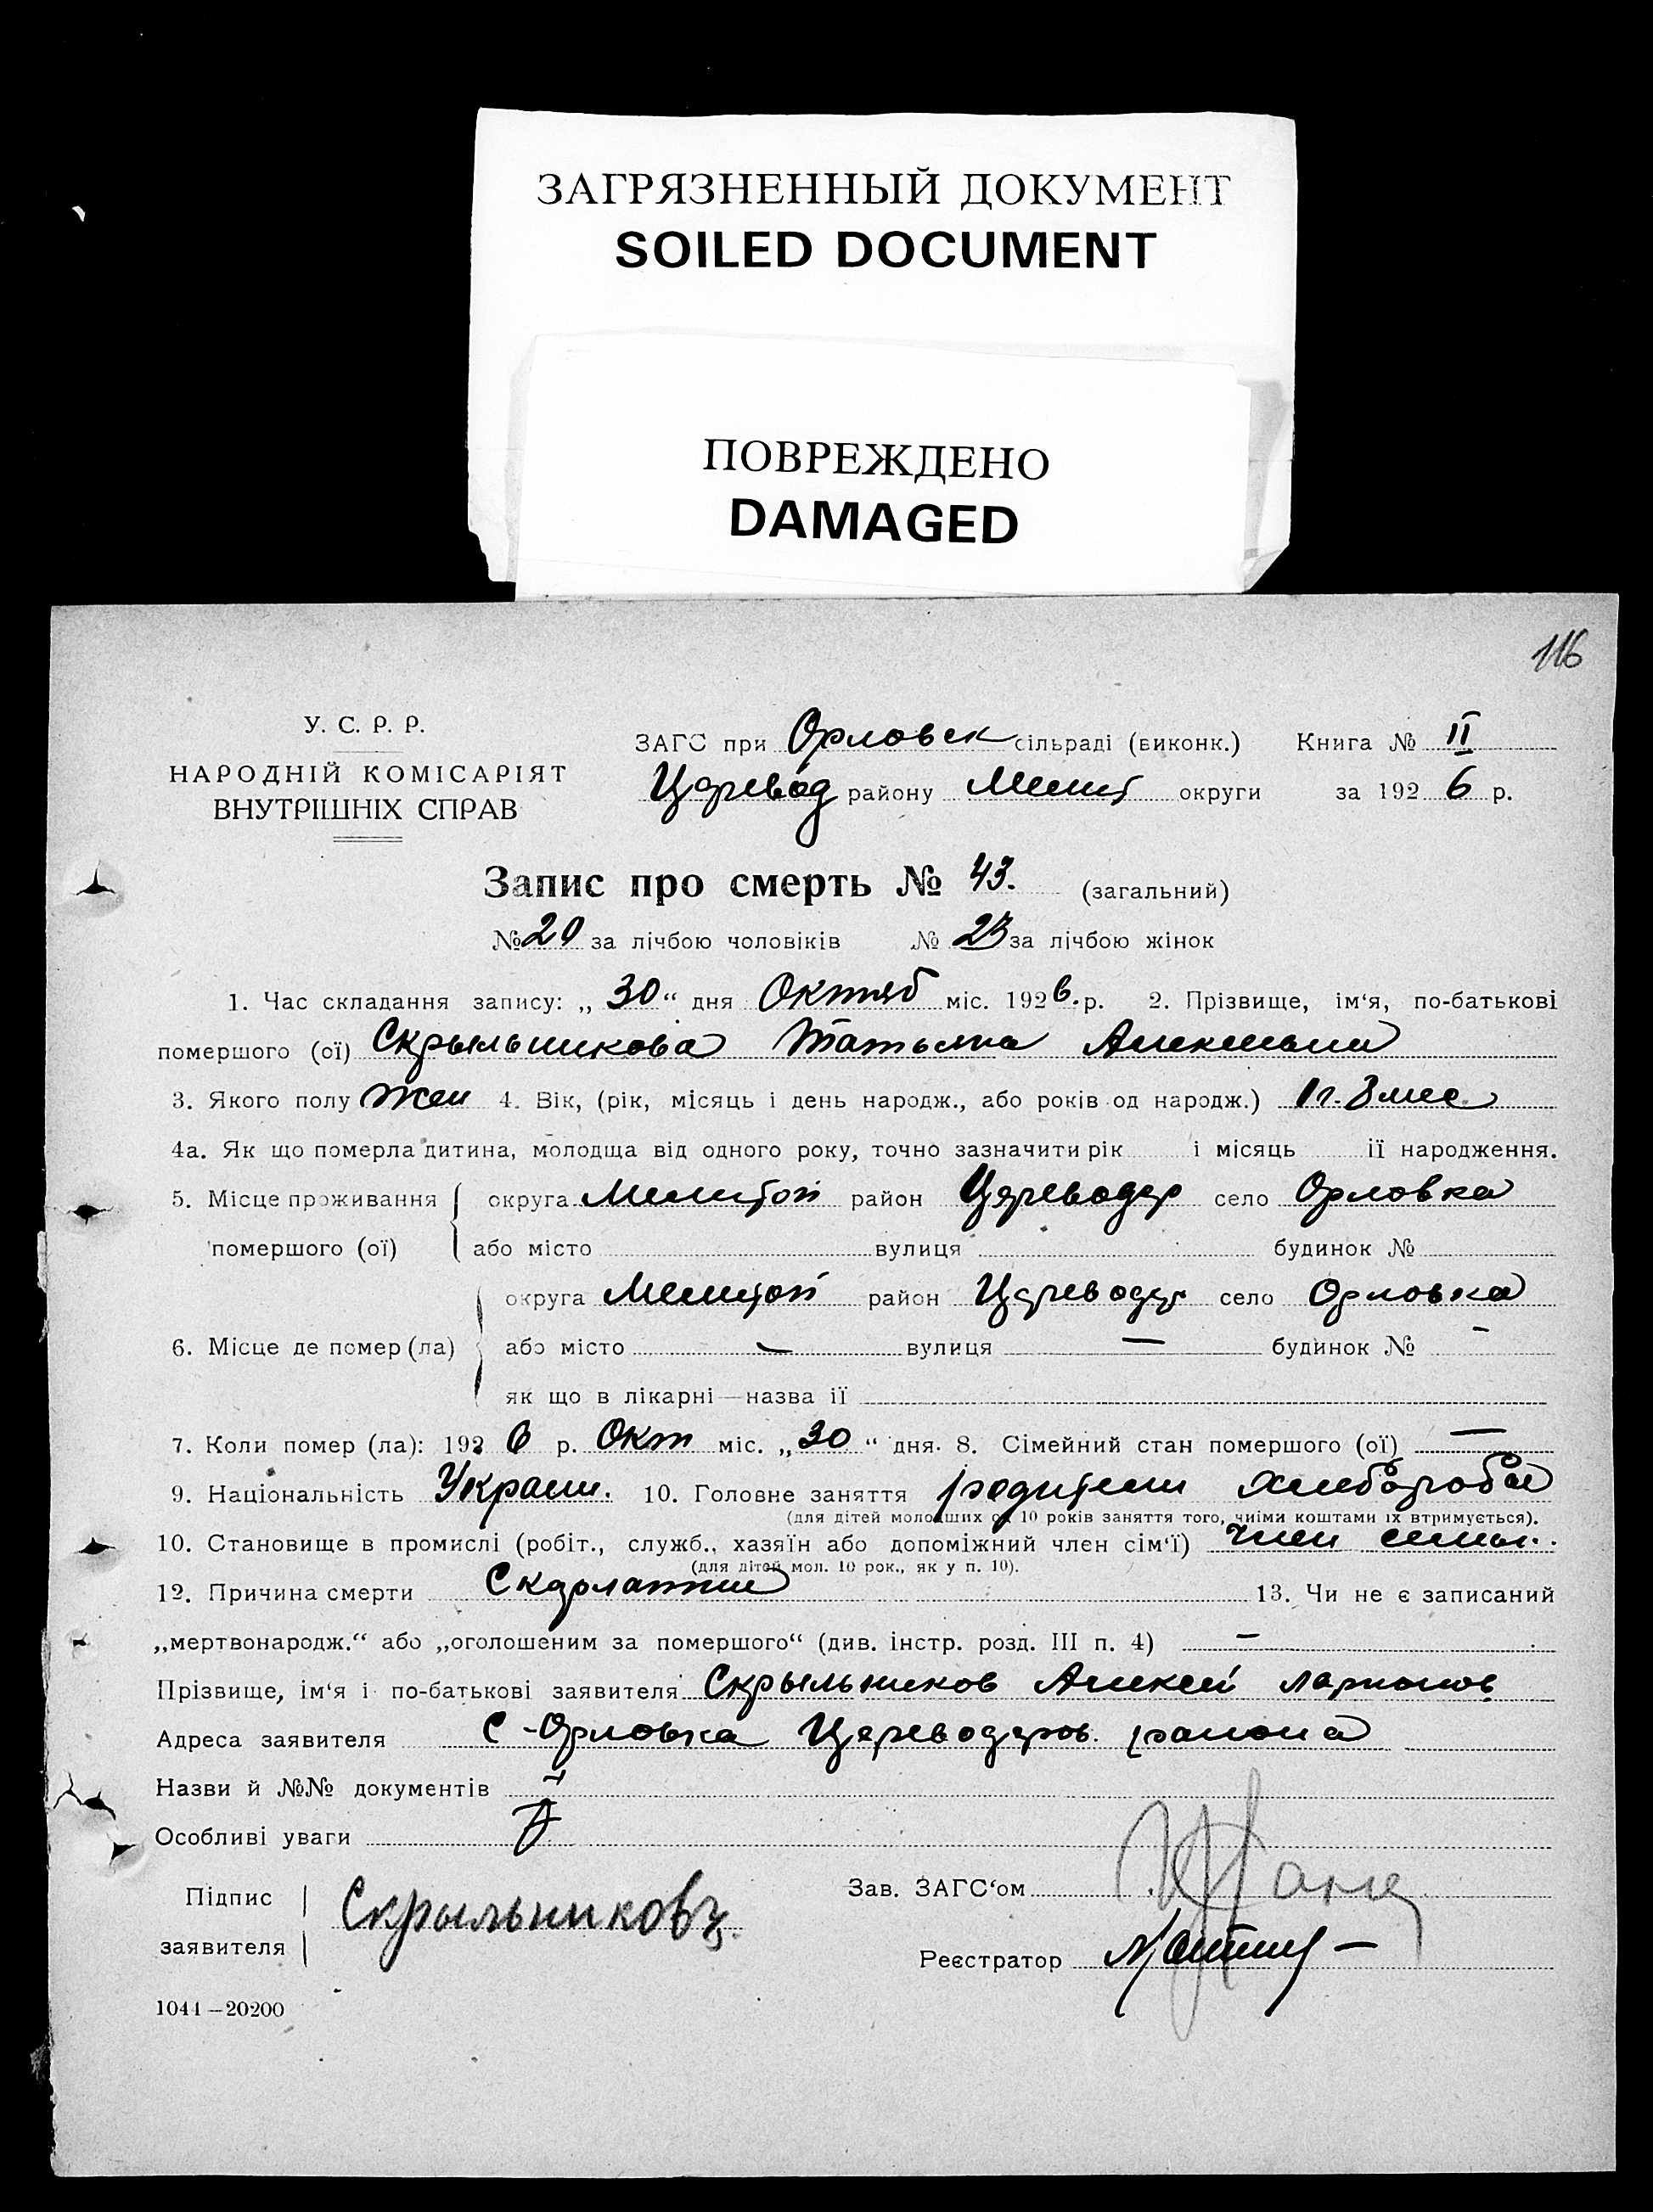 ЗАГРЯЗНЕННЫЙ ДОКУМЕНТ
SOILED DOCUMENT
ПОВРЕЖДЕНО
DAMAGED
116
У. С. Р. Р.
НАРОДНІЙ КОМІСАРІЯТ
ВНУТРІШНІХ СПРАВ
ЗАГС при Орловск сільраді (виконк.) Книга № II
Царевод району Мелит округи за 1926 р.
Запис про смерть № 43. (загальний)
№ 20 за лічбою чоловіків № 23 за лічбою жінок
1. Час складання запису: „30“ дня Октяб міс. 1926. р. 2. Прізвище, ім‘я, по-батькові
помершого (ої) Скрыльникова Татьяна Алексеьви
3. Якого полу Жен 4. Вік, (рік, місяць і день народж., або років од народж.) 1 г. 3 мес
4а. Як що померла дитина, молодща від одного року, точно зазначити рік і місяць її народження.
5. Місце проживання округа Мелитоп район Цареводар село Орловка
помершого (ої) або місто вулиця будинок №
округа Мелитоп район Цареводар село Орловка
6. Місце де помер (ла) або місто — вулиця — будинок № -
як що в лікарні—назва її
7. Коли помер (ла): 1926 р. Окт міс. „30“ дня. 8. Сімейний стан помершого (ої) —
9. Національність Украин. 10. Головне заняття родители хлебороба
(для дітей молодших од 10 років заняття того, чиїми коштами їх втримується).
10. Становище в промислі (робіт., служб., хазяїн або допоміжний член сім‘ї) член семьи.
(для дітей мол. 10 рок., як у п. 10).
12. Причина смерти Скарлатина 13. Чи не є записаний
„мертвонародж.“ або „оголошеним за помершого“ (див. інстр. розд. III п. 4) —
Прізвище, ім‘я і по-батькові заявителя Скрыльников Алексей Ларионов
Адреса заявителя С-Орловка Цареводаров. района
Назви й №№ документів
Особливі уваги
Підпис
заявителя
Скрыльниковъ
Зав. ЗАГС‘ом
Реєстратор
1044—20200